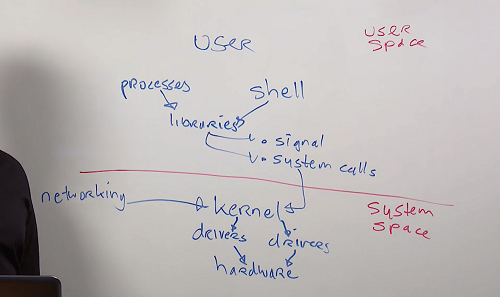 USER
USER
Space
processes
shell
libraries
• signal
• system calls
networking
kernel
System
Space
drivers
drivers
hardware